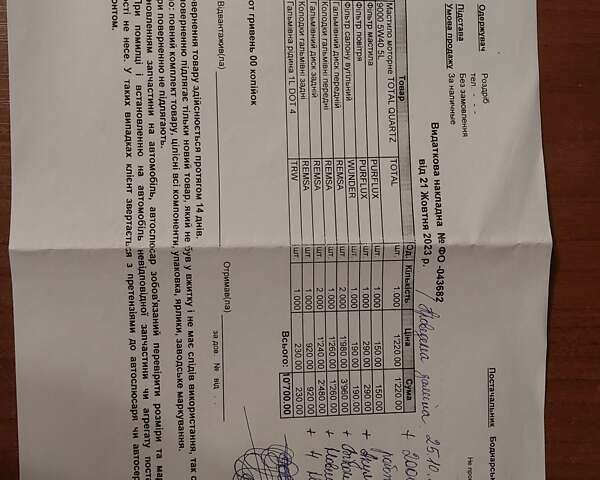 Одержувач Роздріб
тел. - -
Підстава Без замовлення
Умова продажу За наличные
Постачальник Боднарськ
Не про
Видаткова накладна № ФО -043682
від 21 Жовтня 2023 р.
25.10.
Товар Од. Кількість Ціна Сума
Мастило моторне TOTAL QUARTZ 9000 5W40 5L TOTAL шт. 1.000 1'220.00 1'220.00
+ 2000
Фільтр мастила PURFLUX шт. 1.000 150.00 150.00
Фільтр повітря PURFLUX шт. 1.000 290.00 290.00
Фільтр салону вугільний WUNDER шт. 1.000 190.00 190.00
Гальмівний диск передній REMSA шт. 2.000 1'980.00 3'960.00
Колодки гальмівні передні REMSA шт. 1.000 1'260.00 1'260.00
Гальмівний диск задній REMSA шт. 2.000 1'240.00 2'480.00
Колодки гальмівні задні REMSA шт. 1.000 920.00 920.00
Гальмівна рідина 1L DOT 4 TRW шт. 1.000 230.00 230.00
Всього: 10'700.00
от гривень 00 копійок
Відвантажив(ла) Отримав(ла)
за дов. № від . .
вернення товару здійснюється протягом 14 днів.
поверненню підлягає тільки новий товар, який не був у вжитку і не має слідів використання, так с
о: повний комплект товару, цілісні всі компоненти, упаковка, ярлики, заводське маркування.
ри поверненню не підлягають.
новленням запчастини на автомобіль, автослюсар зобов'язаний перевірити розміри та мар
При помилці і встановленню на автомобіль невідповідної запчастини чи агрегату пост
ості не несе. У таких випадках клієнт звертається з претензіями до автослюсаря чи автосер
онтом.